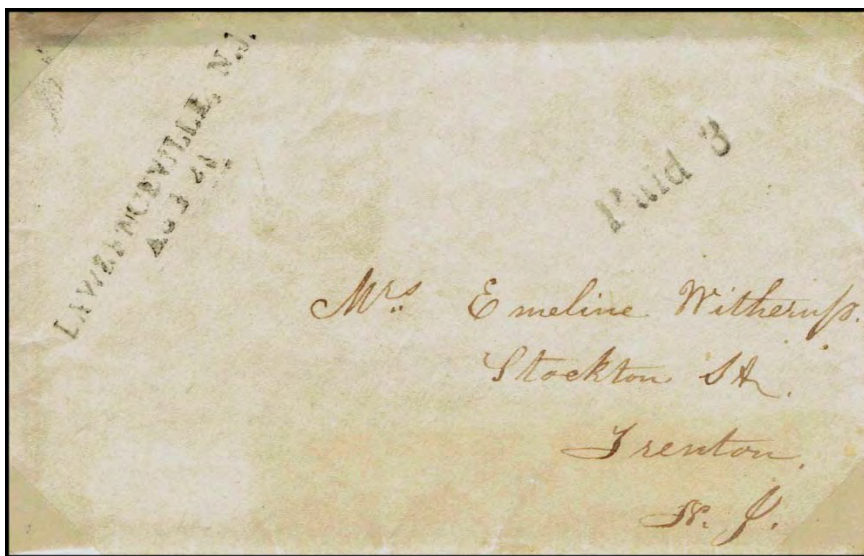 LAWRENCEVILLE, N.J.
Paid 3
Mrs. Emeline Witherup.
Stockton St.
Trenton.
N. J.